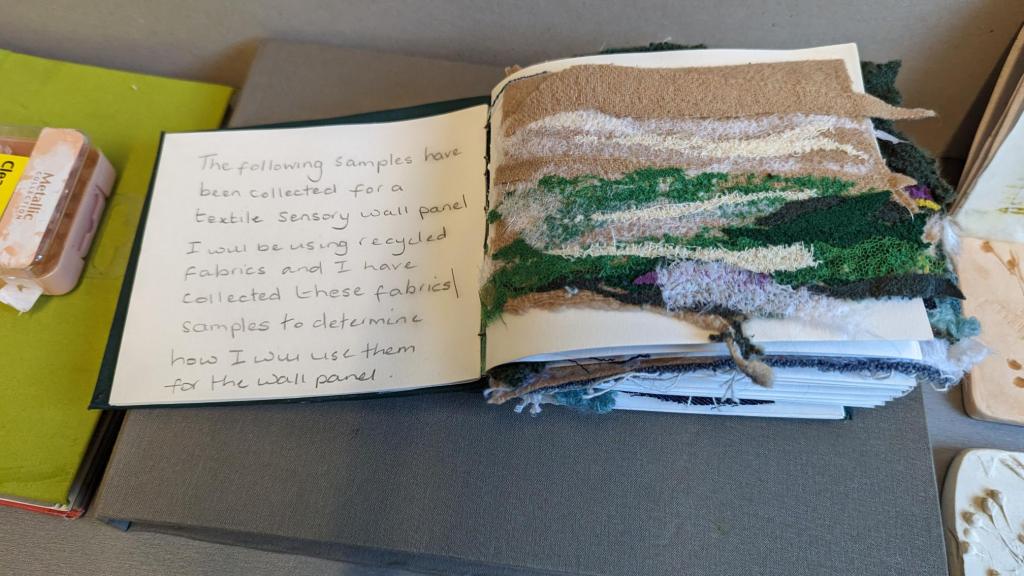 The following samples have
been collected for a
textile sensory wall panel
I will be using recycled
fabrics and I have
collected these fabrics/
samples to determine
how I will use them
for the wall panel.
Metallic
Clea